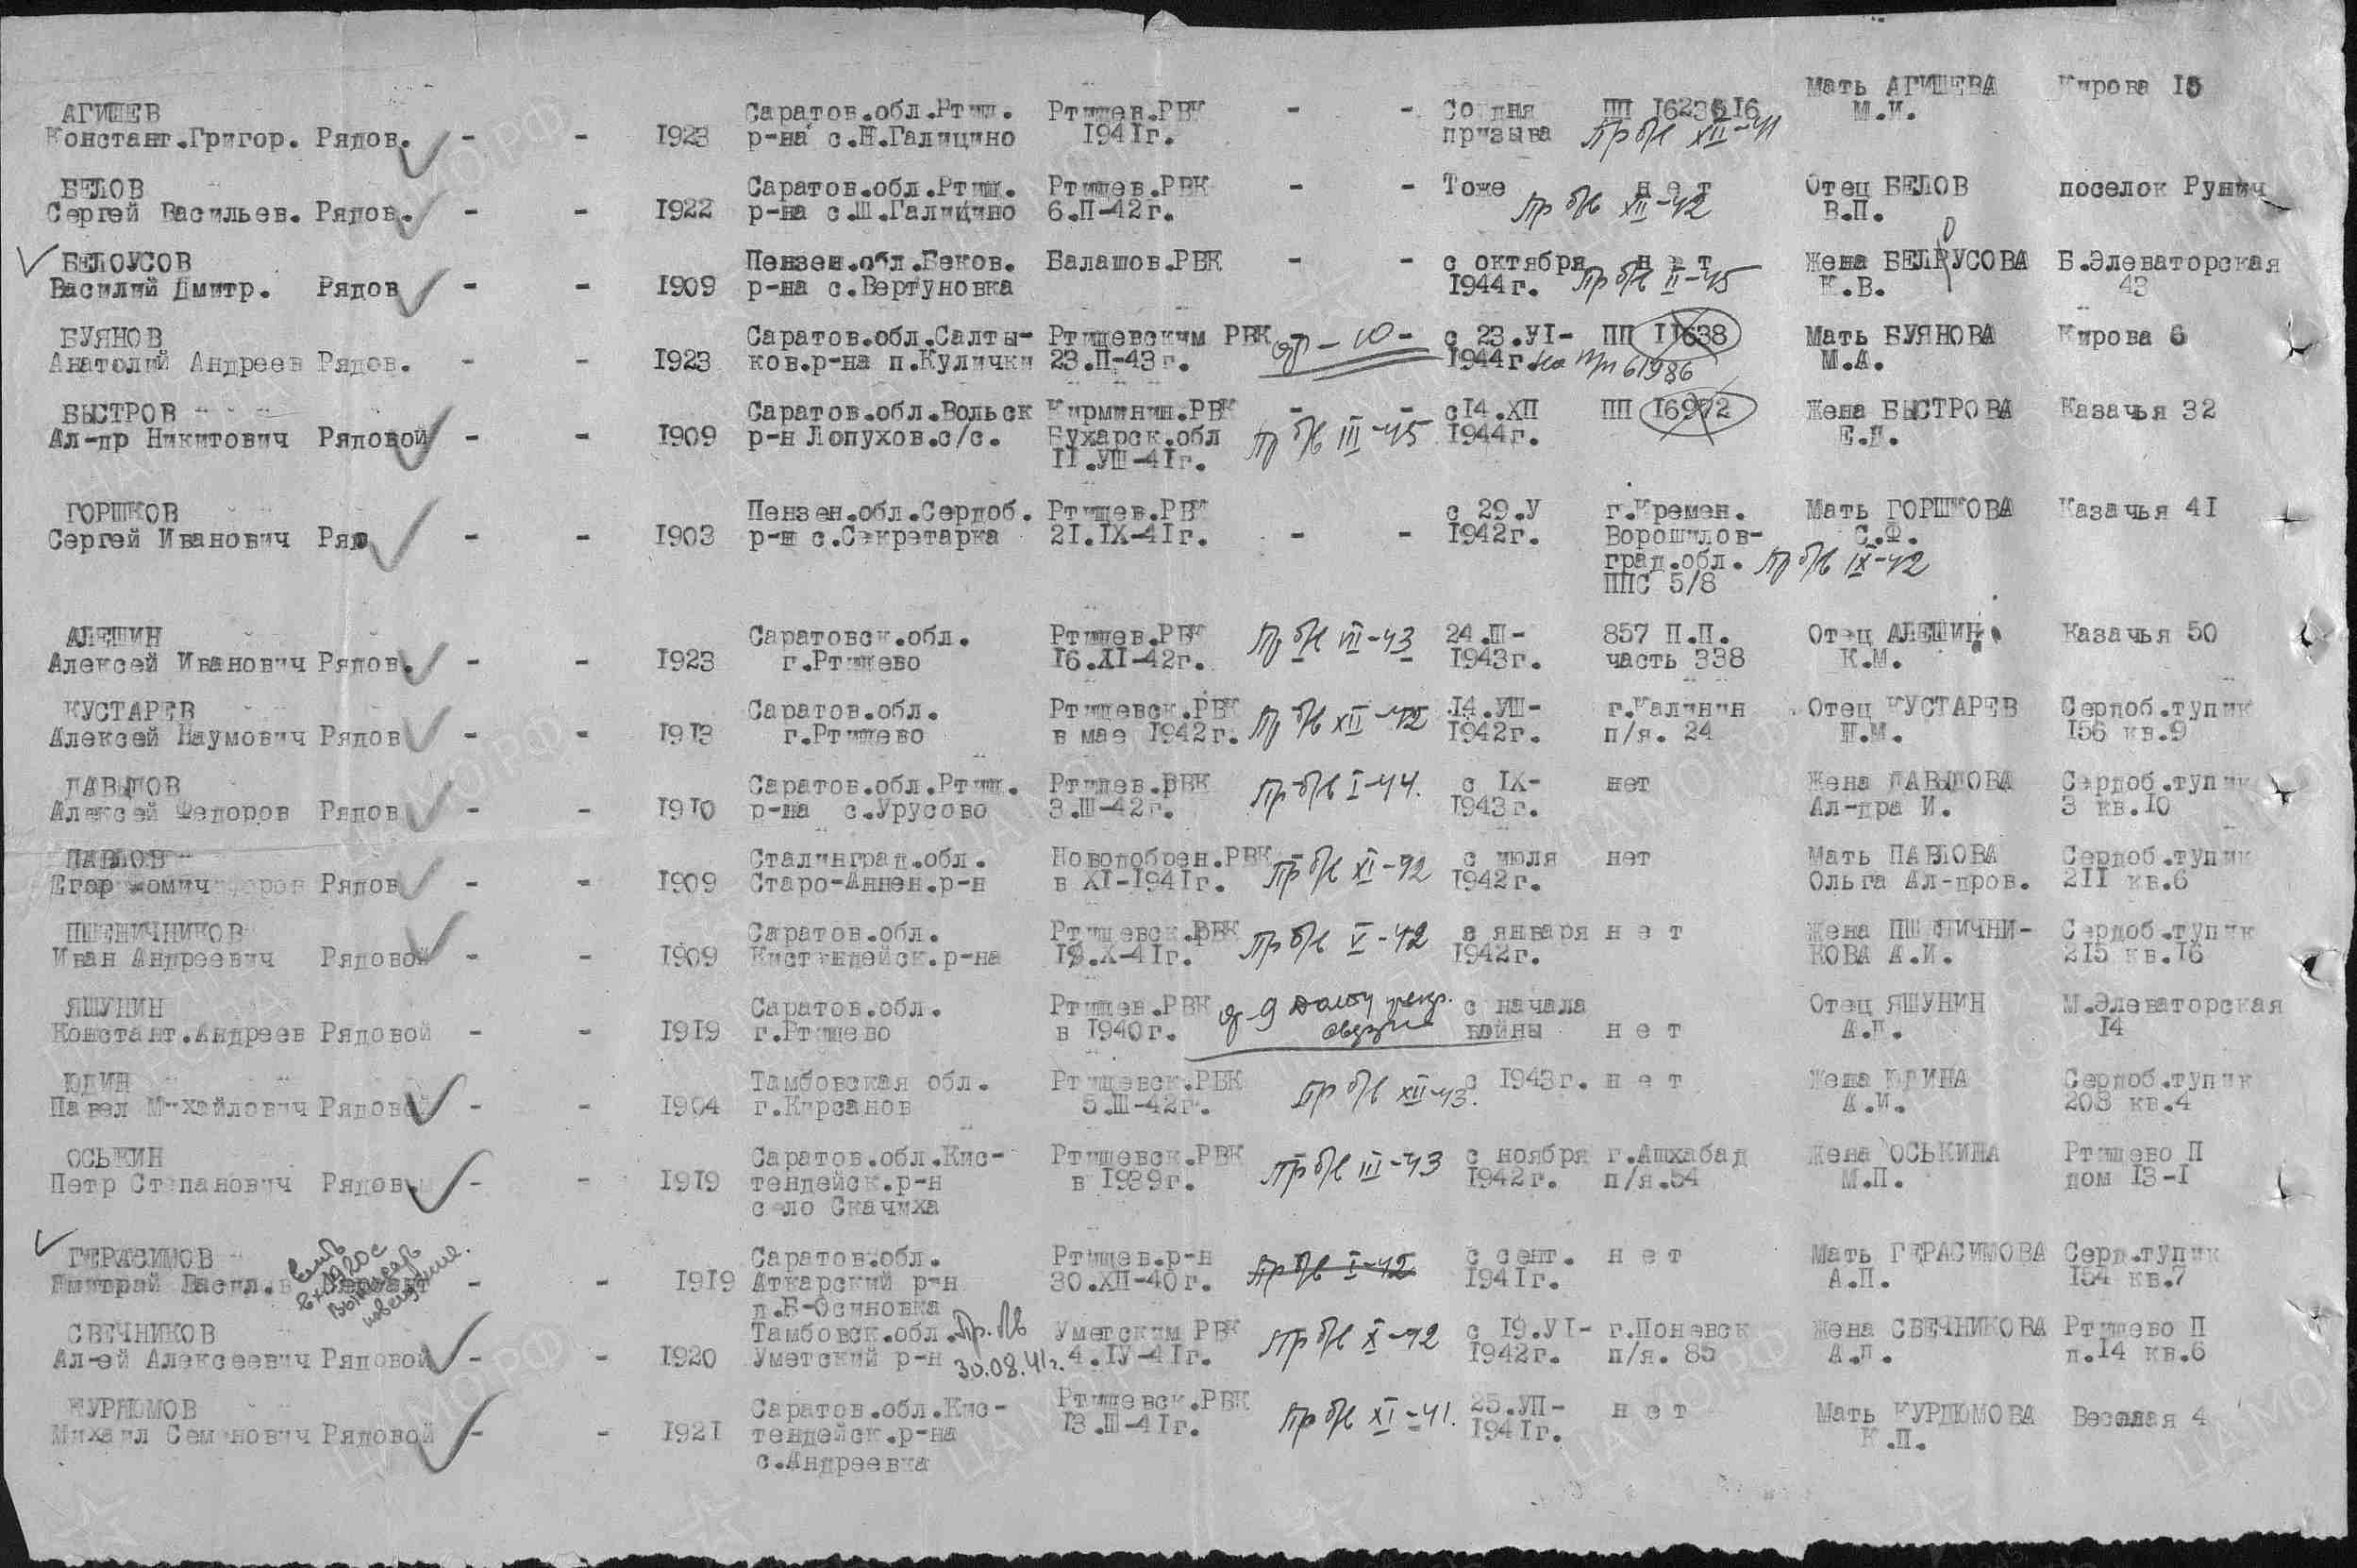 АГИШЕВ
Констант.Григор. Рядов. - - 1923 Саратов.обл.Ртищ. Ртищев.РВК - - Со дня ПП 1623516 Мать АГИШЕВА Кирова 15
р-на с.Н.Галицино 1941г. призыва Пр б/в XII-41 М.И.
БЕЛОВ
Сергей Васильев. Рядов. - - 1922 Саратов.обл.Ртищ. Ртищев.РВК - - Тоже нет Отец БЕЛОВ поселок Рунич
р-на с.Ш.Галицино 6.П-42г. Пр б/в XII-42 В.П.
БЕЛОУСОВ
Василий Дмитр. Рядов - - 1909 Пензен.обл.Беков. Балашов.РВК - - с октября нет Жена БЕЛОУСОВА Б.Элеваторская
р-на с.Вертуновка 1944г. Пр б/в II-45 К.В. 43
БУЯНОВ
Анатолий Андреев Рядов. - - 1923 Саратов.обл.Салты- Ртищевским РВК - 10 - с 23.УI- ПП 11638 Мать БУЯНОВА Кирова 6
ков.р-на п.Кулички 23.П-43г. 1944г. на пп 61986 М.А.
БЫСТРОВ
Ал-др Никитович Рядовой - - 1909 Саратов.обл.Вольск Кирминин.РВК - - с14.ХП ПП 16972 Жена БЫСТРОВА Казачья 32
р-н Лопухов.с/с. Бухарск.обл Пр б/в III-45 1944г. Е.Д.
11.УШ-41г.
ГОРШКОВ
Сергей Иванович Ряд - - 1903 Пензен.обл.Сердоб. Ртищев.РВК с 29.У г.Кремен. Мать ГОРШКОВА Казачья 41
р-н с.Секретарка 21.IХ-41г. - - 1942г. Ворошилов- С.Ф.
град.обл. Пр б/в IX-42
ППС 5/8
АЛЕШИН
Алексей Иванович Рядов. - - 1923 Саратовск.обл. Ртищев.РВК Пр б/в VII-43 24.Ш- 857 П.П. Отец АЛЕШИН Казачья 50
г.Ртищево 16.ХI-42г. 1943г. часть 338 К.М.
КУСТАРЕВ
Алексей Наумович Рядов - - 1913 Саратов.обл. Ртищевск.РВК Пр б/в XII-42 14.УШ- г.Калинин Отец КУСТАРЕВ Сердоб.тупик
г.Ртищево в мае 1942г. 1942г. п/я. 24 Н.М. 156 кв.9
ДАВЫДОВ
Алексей Федоров Рядов - - 1910 Саратов.обл.Ртищ. Ртищев.РВК Пр б/в I-44. с IХ- нет Жена ДАВЫДОВА Сердоб.тупик
р-на с.Урусово 3.Ш-42г. 1943г. Ал-дра И. 3 кв.10
ПАВЛОВ
Егор Фомич Рядов - - 1909 Сталинград.обл. Новодобрен.РВК Пр б/в XI-42 с июля нет Мать ПАВЛОВА Сердоб.тупик
Старо-Аннен.р-н в ХI-1941г. 1942г. Ольга Ал-дров. 211 кв.6
ПШЕНИЧНИКОВ
Иван Андреевич Рядовой - - 1909 Саратов.обл. Ртищевск.РВК Пр б/в V-42 с января нет Жена ПШЕНИЧНИ- Сердоб.тупик
Кистендейск.р-на 18.Х-41г. 1942г. КОВА А.И. 215 кв.16
ЯШУНИН
Констант.Андреев Рядовой - - 1919 Саратов.обл. Ртищев.РВК с начала Отец ЯШУНИН М.Элеваторская
г.Ртищево в 1940г. войны нет А.Д. 14
ЮДИН
Павел Михайлович Рядовой - - 1904 Тамбовская обл. Ртищевск.РВК Пр б/в XII-43. с 1943г. нет Жена ЮДИНА Сердоб.тупик
г.Кирсанов 5.Ш-42г. А.И. 208 кв.4
ОСЬКИН
Петр Степанович Рядовы - - 1919 Саратов.обл.Кис- Ртищевск.РВК Пр б/в III-43 с ноября г.Ашхабад Жена ОСЬКИНА Ртищево П
тендейск.р-н в 1939г. 1942г. п/я.54 М.П. дом 13-1
село Скачиха
ГЕРАСИМОВ
Дмитрий Васил. - - 1919 Саратов.обл. Ртищев.р-н Пр б/в I-42 с сент. нет Мать ГЕРАСИМОВА Серд.тупик
Аткарский р-н 30.ХП-40г. 1941г. А.П. 154 кв.7
д.Б-Осиновка
СВЕЧНИКОВ
Ал-ей Алексеевич Рядовой - - 1920 Тамбовск.обл. Пр. б/в Уметским РВК Пр б/в X-42 с 19.УI- г.Поневск Жена СВЕЧНИКОВА Ртищево П
Уметский р-н 30.08.41г. 4.IУ-41г. 1942г. п/я. 85 А.Д. д.14 кв.6
КУРДЮМОВ
Михаил Семенович Рядовой - - 1921 Саратов.обл.Кис- Ртищевск.РВК Пр б/в XI-41. 25.УП- нет Мать КУРДЮМОВА Веселая 4
тендейск.р-на 13.Ш-41г. 1941г. К.П.
с.Андреевка